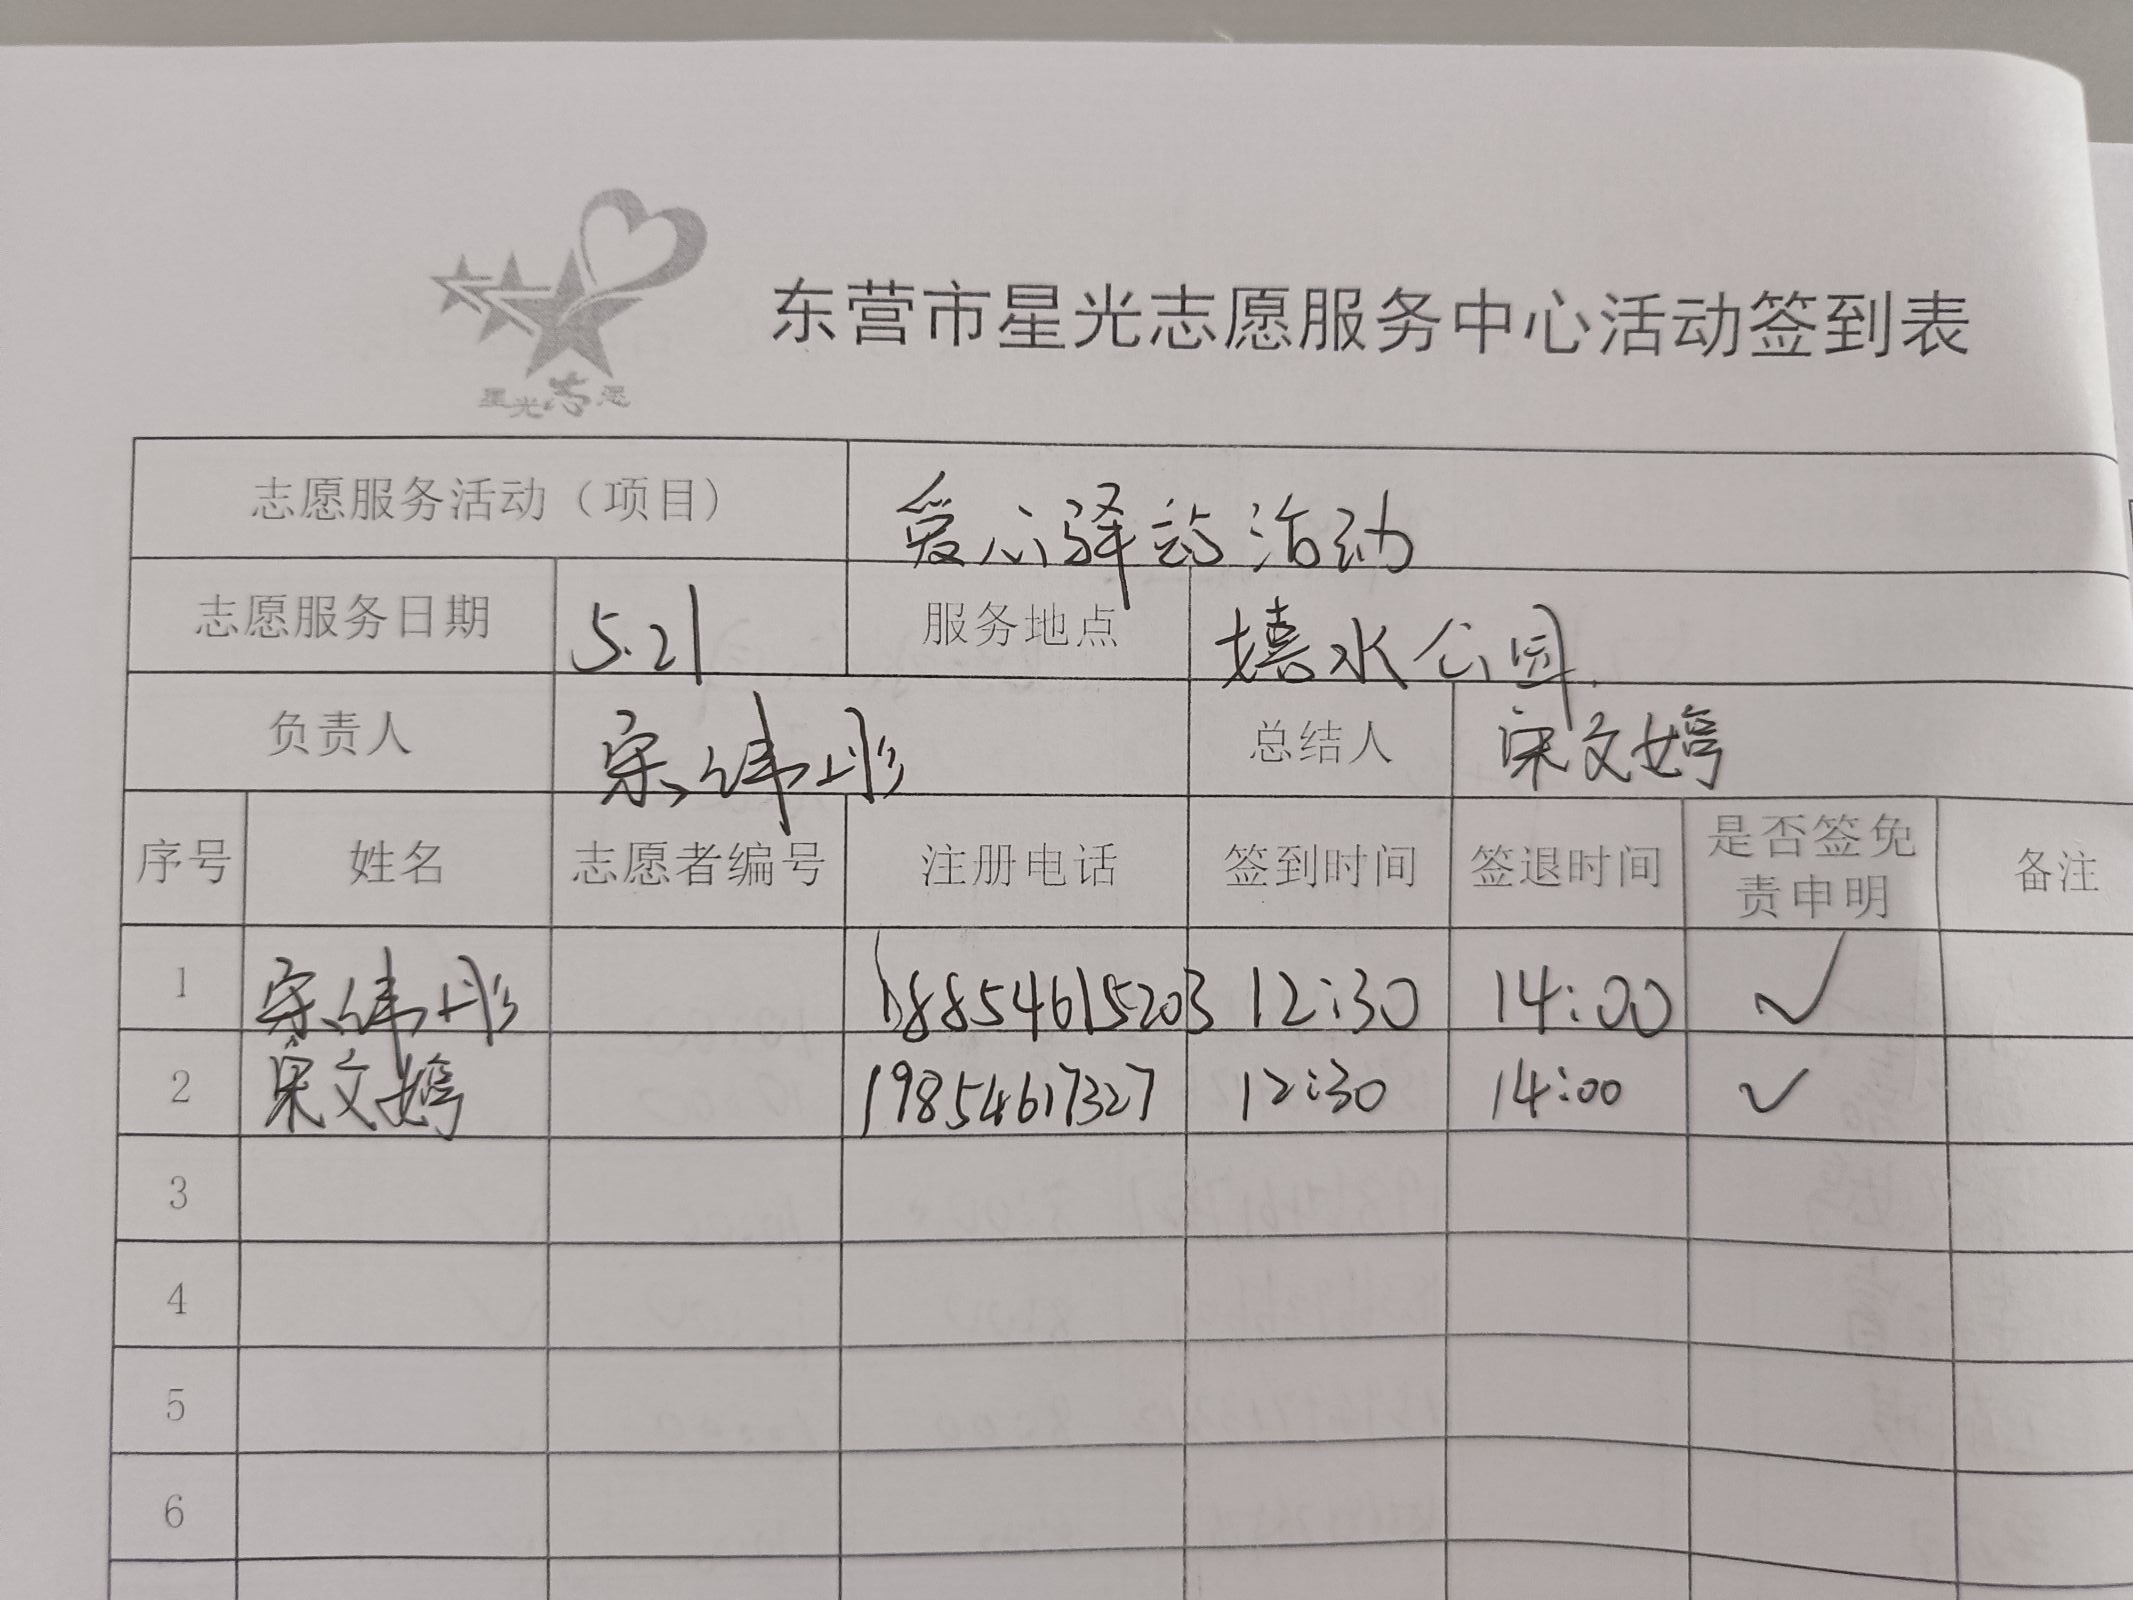 星光志愿
东营市星光志愿服务中心活动签到表
志愿服务活动（项目） 爱心驿站活动
志愿服务日期 5.21 服务地点 嬉水公园
负责人 宋伟彤 总结人 宋文婷
序号 姓名 志愿者编号 注册电话 签到时间 签退时间 是否签免责申明 备注
1 宋伟彤 18854615203 12:30 14:00 ✓
2 宋文婷 19854617327 12:30 14:00 ✓
3
4
5
6